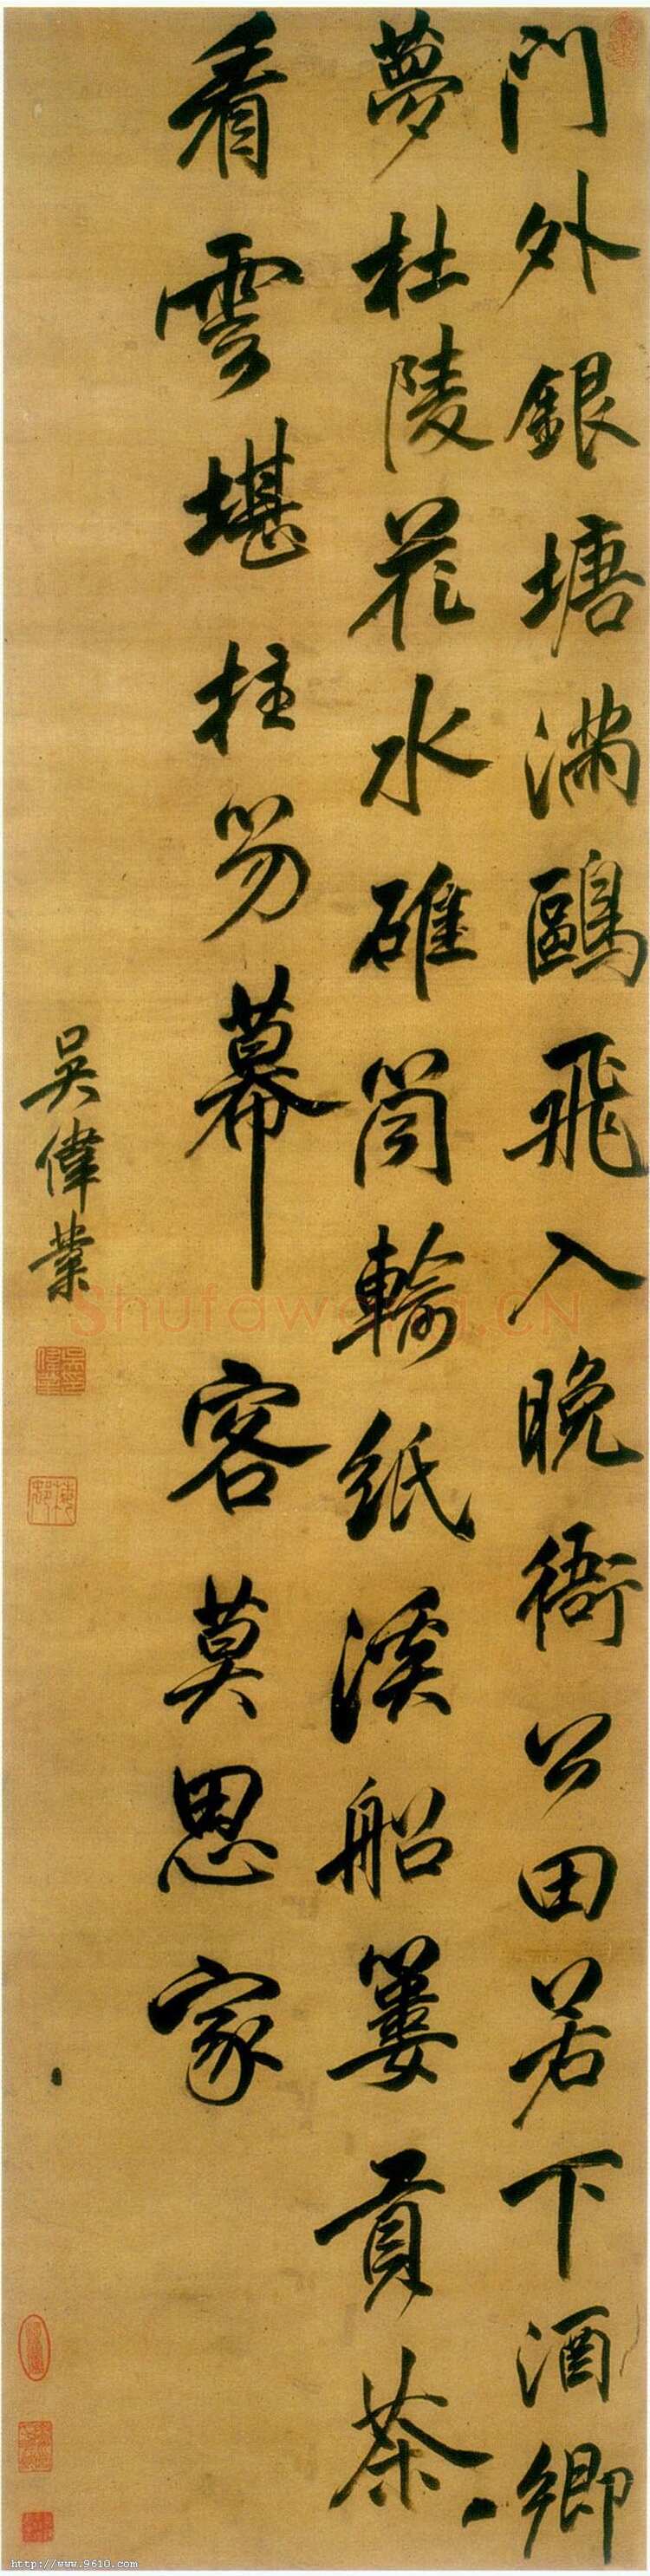 門外銀塘滿鷗飛入晚衙公田若下酒鄉
夢杜陵花水碓筒輸紙溪船簍貢茶
看雲堪拄笏幕客莫思家
吳偉業
Shufawang.CN
http://www.9610.com